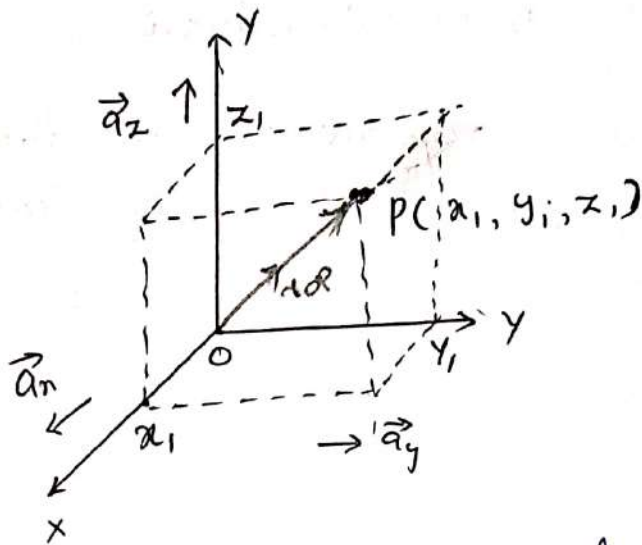 Y
→a_z ↑ z₁
P(x₁, y₁, z₁)
O
Y₁ Y
→a_x
x₁
→ →a_y
X